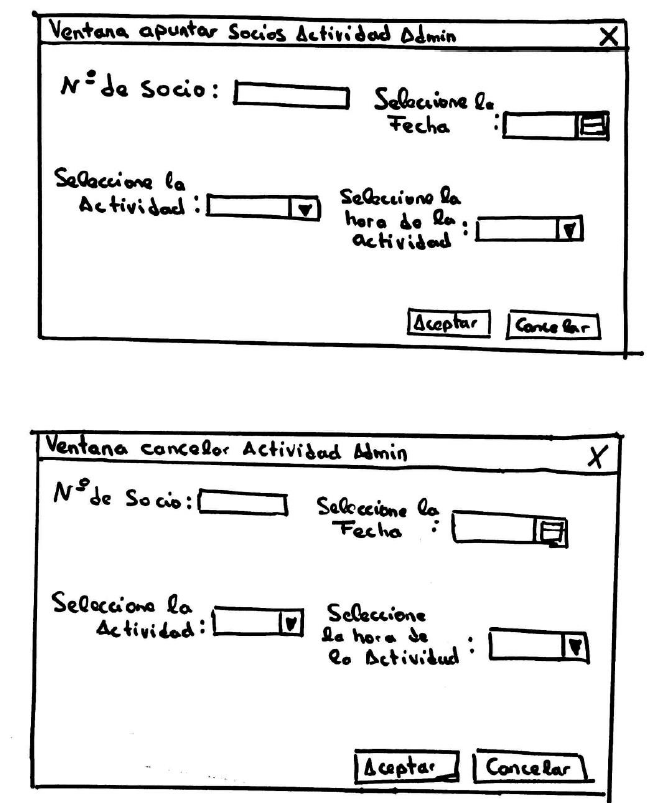 Ventana apuntar Socios Actividad Admin X
Nº de Socio:
Seleccione la
Fecha :
Seleccione la
Actividad :
Seleccione la
hora de la
actividad :
Aceptar Cancelar
Ventana cancelar Actividad Admin X
Nº de Socio:
Seleccione la
Fecha :
Seleccione la
Actividad :
Seleccione
la hora de
la Actividad :
Aceptar Cancelar